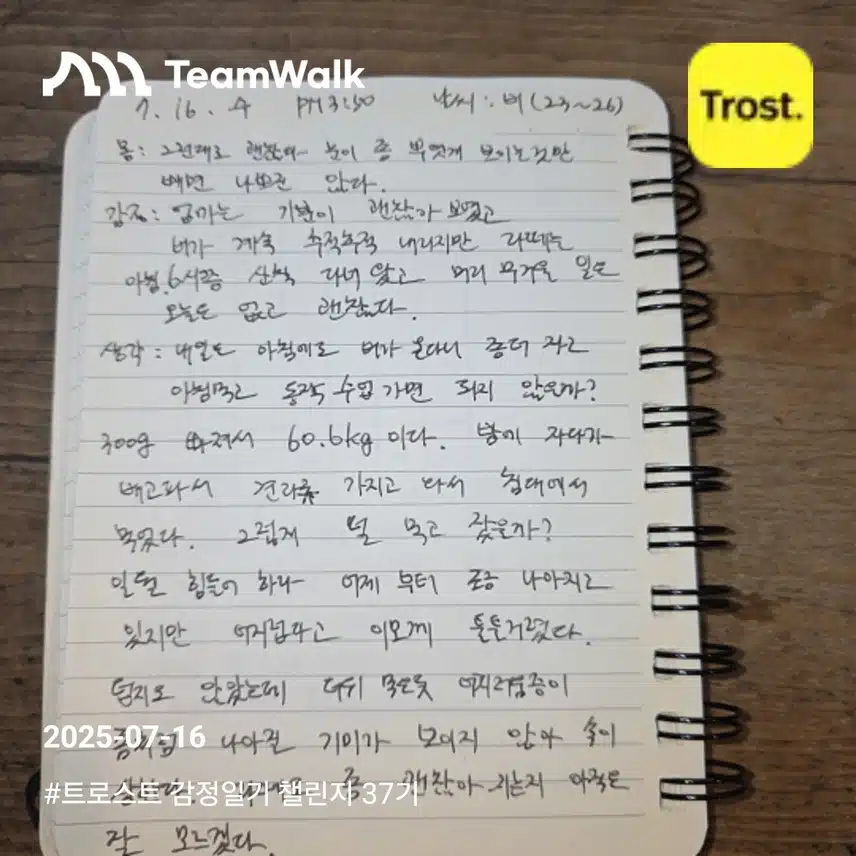 TeamWalk
Trost.
7. 16. 수 PM 3:50 날씨: 비(23~26)
몸: 그런대로 괜찮다 눈이 좀 부옇게 보이는것만
빼면 나쁘진 않다.
감정: 엄마는 기분이 괜찮가 보였고
비가 계속 추적추적 내리지만 라떼는
아침.6시쯤 산책 다녀 왔고 머리 무거울 일도
오늘은 없고 괜찮다.
생각: 내일도 아침에로 비가 온다니 좀더 자고
아침먹고 동작 수업 가면 되지 않을까?
300g 빠져서 60.6kg 이다. 밤에 자다가
배고파서 견과류 가지고 와서 침대에서
먹었다. 그렇게 덜 먹고 잤을까?
일도 힘들어 하나 어제 부터 조금 나아지고
있지만 어지럽다고 이모께 툴툴거렸다.
덥지도 않았는데 더위 먹은듯 어지러움증이
좀처럼 나아질 기미가 보이지 않아 속이
좀 괜찮아 지는지 아직은
잘 모르겠다.
2025-07-16
#트로스트 감정일기 챌린지 37기